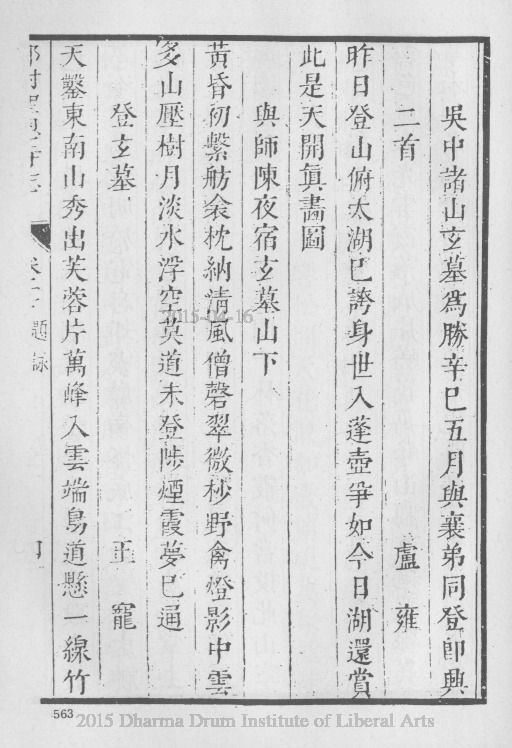 吳中諸山玄墓為勝辛巳五月與襄弟同登即興
二首 盧雍
昨日登山俯太湖已誇身世入蓬壺爭如今日湖還賞
此是天開眞畵圖
與師陳夜宿玄墓山下
黃昏初繫舫衾枕納清風僧磬翠微杪野禽燈影中雲
多山壓樹月淡水浮空莫道未登陟煙霞夢已通
登玄墓 王寵
天鑿東南山秀出芙蓉片萬峰入雲端鳥道懸一線竹
題詠
2015-04-16
563
2015 Dharma Drum Institute of Liberal Arts